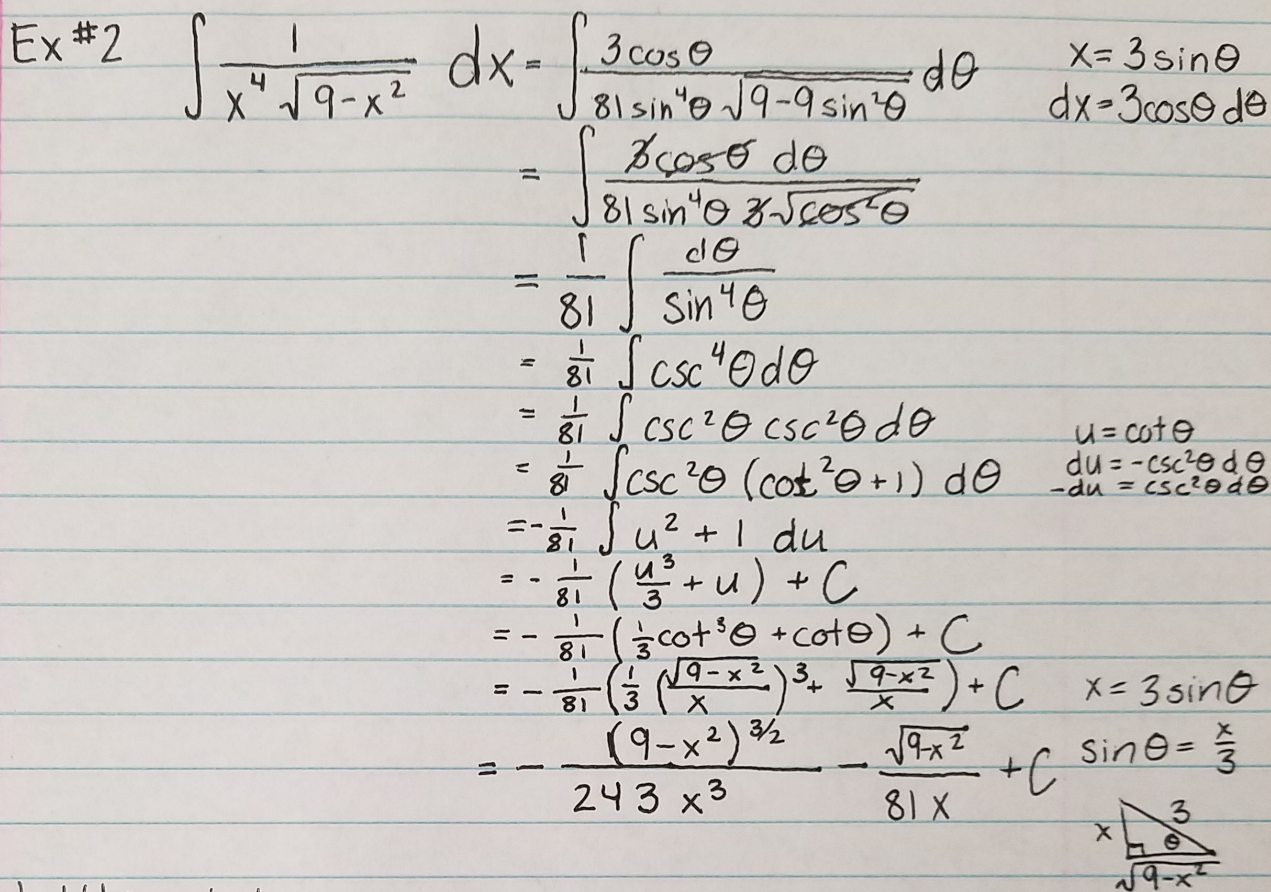 Ex #2 ∫ 1 / (x⁴ √(9-x²)) dx = ∫ 3cosθ / (81 sin⁴θ √(9-9 sin²θ)) dθ x = 3 sinθ
dx = 3cosθ dθ
= ∫ 3cosθ dθ / (81 sin⁴θ 3√(cos²θ))
= 1/81 ∫ dθ / sin⁴θ
= 1/81 ∫ csc⁴θ dθ
= 1/81 ∫ csc²θ csc²θ dθ u = cotθ
= 1/81 ∫ csc²θ (cot²θ + 1) dθ du = -csc²θ dθ
-du = csc²θ dθ
= -1/81 ∫ u² + 1 du
= -1/81 (u³/3 + u) + C
= -1/81 (1/3 cot³θ + cotθ) + C
= -1/81 (1/3 (√(9-x²) / x)³ + √(9-x²) / x) + C x = 3 sinθ
= - (9-x²)^(3/2) / (243 x³) - √(9-x²) / (81x) + C sinθ = x/3
x 3 θ
√(9-x²)